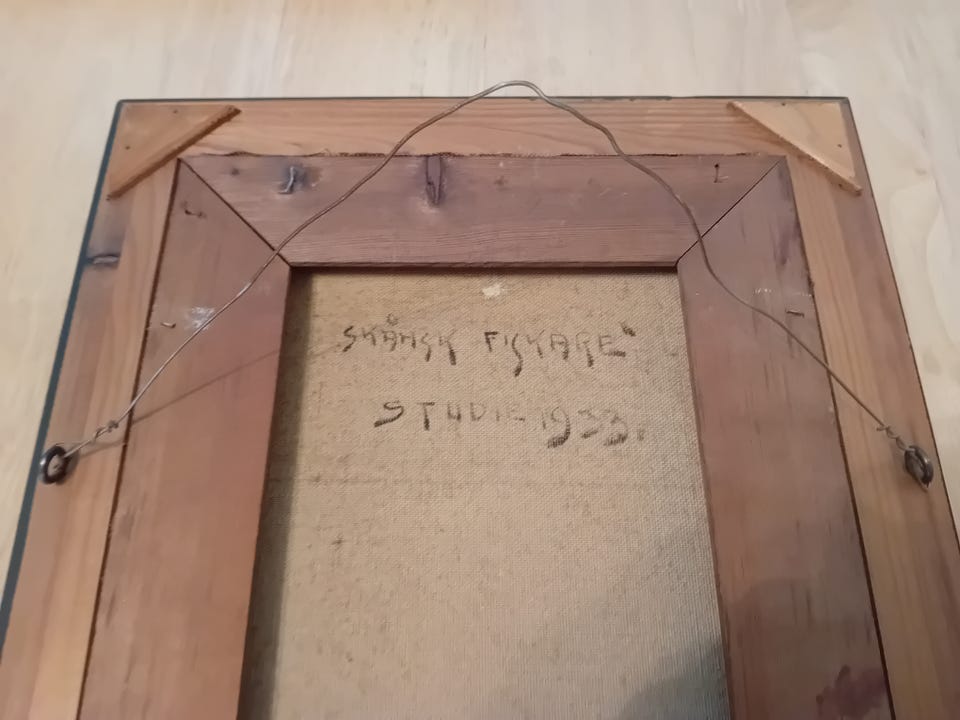 SKÅNSK FISKARE"
STUDIE 1933.